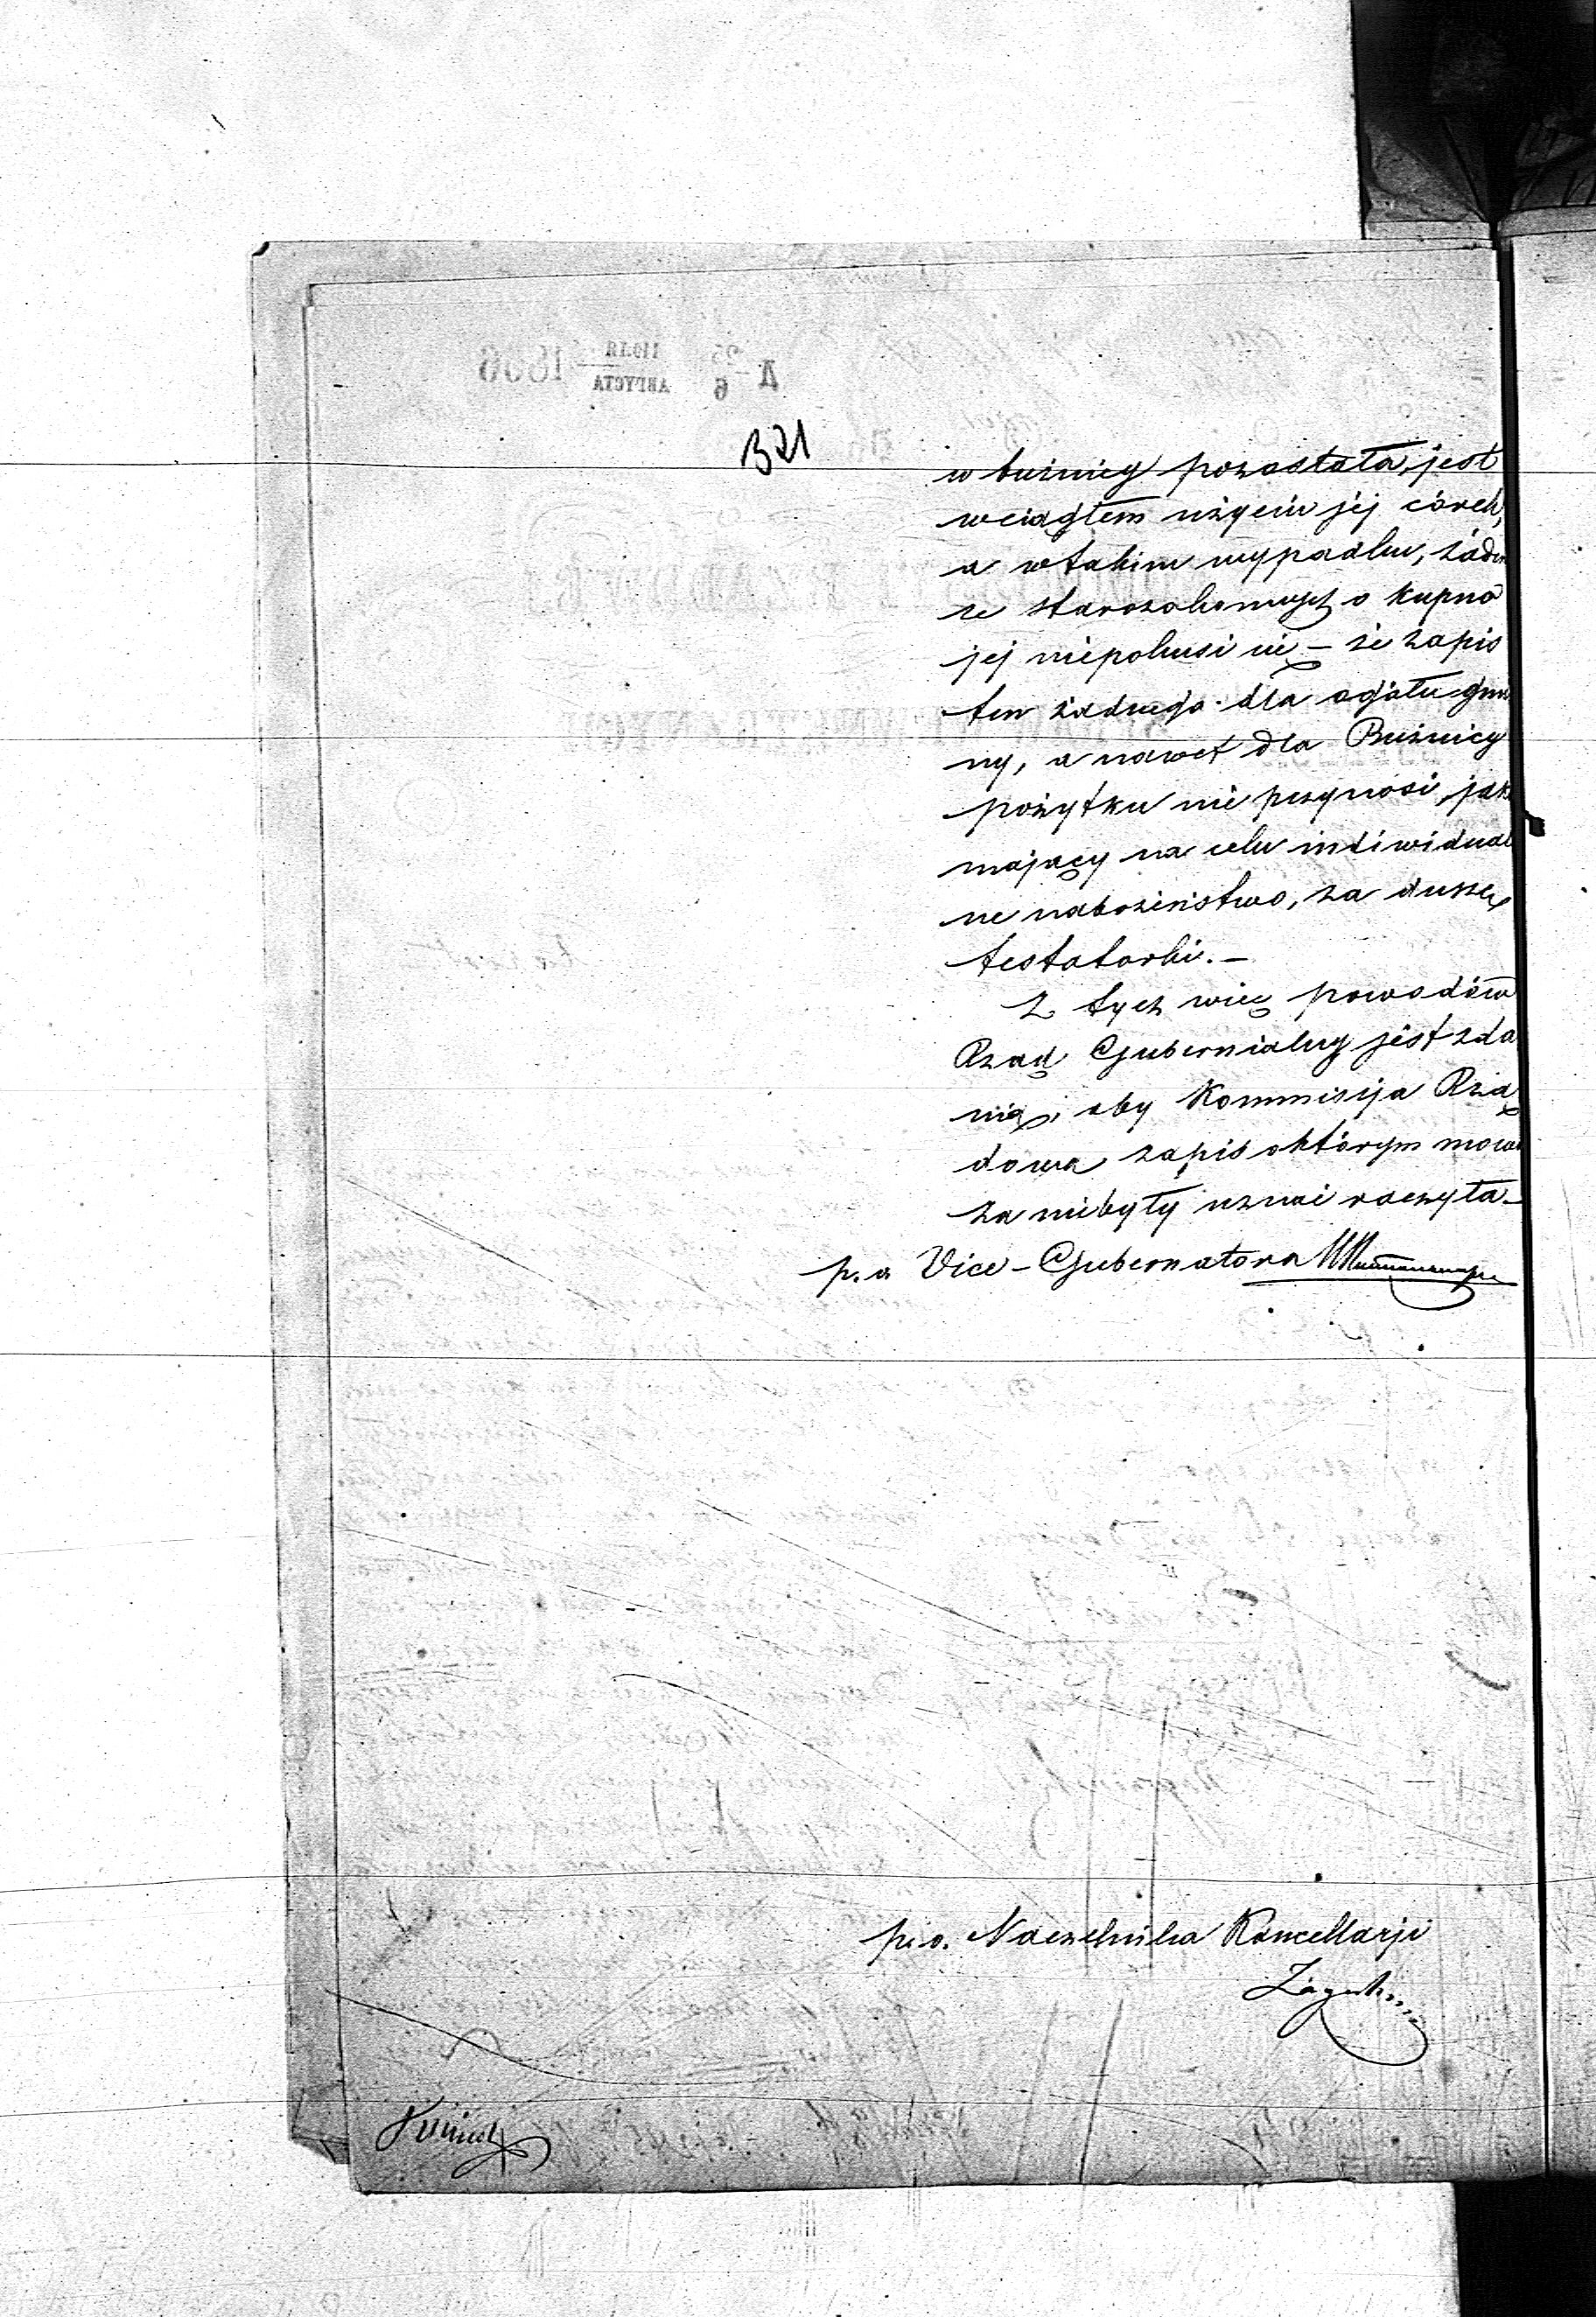 321
w buźnicy pozostała, jest
wciągłem użyciu jéj córek,
a w takim wypadku, żáden
ze starozakonnych o kupno
jej niepokusi się – że zapis
ten żadnego dla ogółu gmi
ny, a nawet dla Buźnicy
pożytku nie przynosi, jako
mający na celu indiwidual
ne nabożeństwo, za duszę
testatorki. –
Z tych więc powodów
Rząd Gubernialny jest zda
nia, aby Kommissja Rzą
dowa zapis o którym mowa
za niebyły uznać raczyła –
p. o Vice-Gubernatora
p. o. Naczelnika Kancellarji